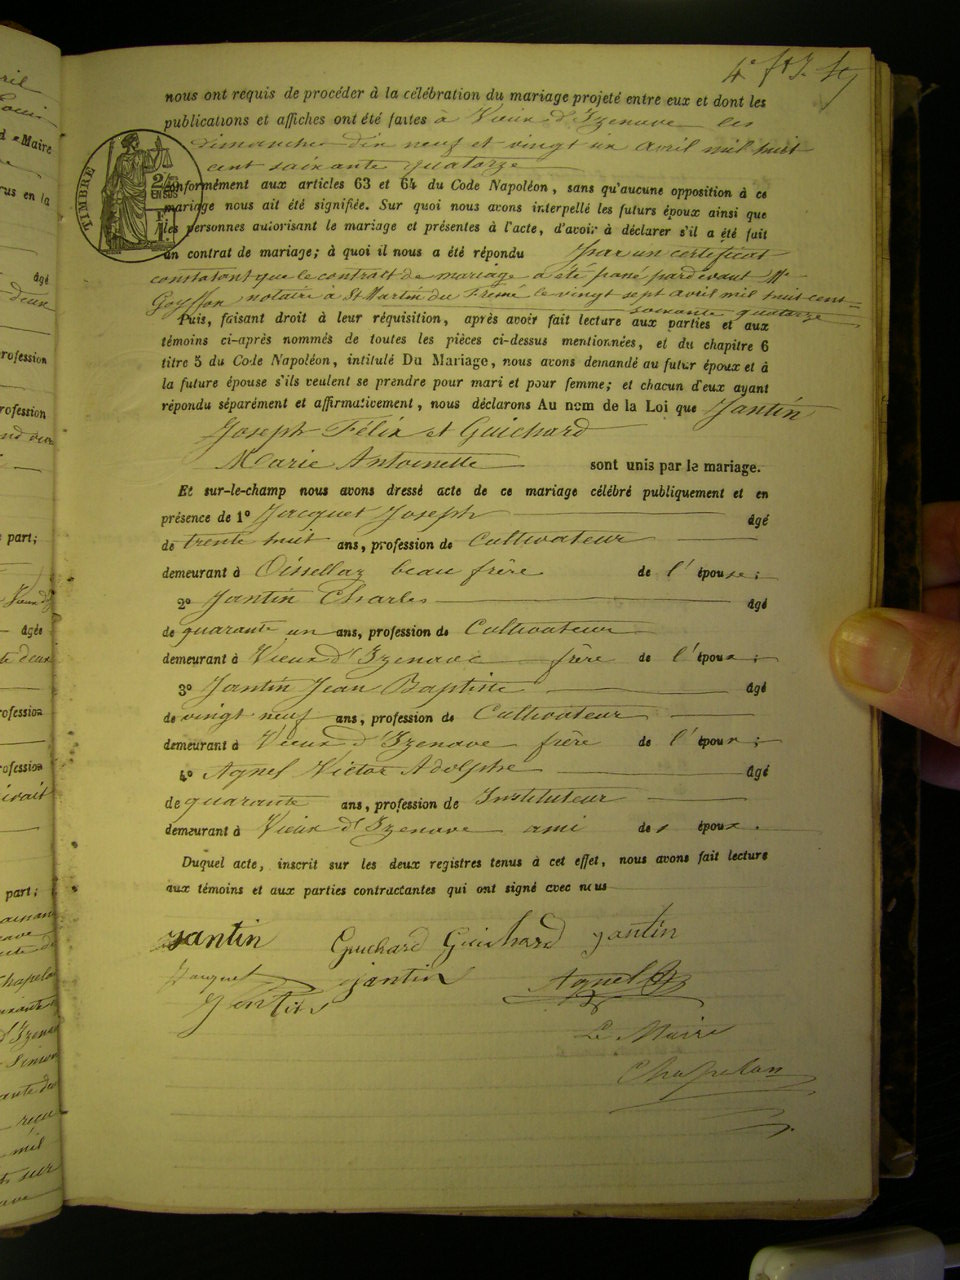 4e
nous ont requis de procéder à la célébration du mariage projeté entre eux et dont les
publications et affiches ont été faites à Vieux d'Izenave les
dimanches dix neuf et vingt six avril mil huit
cent soixante quatorze
TIMBRE
2/10 EN SUS
conformément aux articles 63 et 64 du Code Napoléon, sans qu'aucune opposition à ce
mariage nous ait été signifiée. Sur quoi nous avons interpellé les futurs époux ainsi que
les personnes autorisant le mariage et présentes à l'acte, d'avoir à déclarer s'il a été fait
un contrat de mariage; à quoi il nous a été répondu par un certificat
constatant que le contrat de mariage a été passé pardevant Me
notaire à St Martin du Frêne le vingt sept avril mil huit cent
soixante quatorze
Puis, faisant droit à leur réquisition, après avoir fait lecture aux parties et aux
témoins ci-après nommés de toutes les pièces ci-dessus mentionnées, et du chapitre 6
titre 5 du Code Napoléon, intitulé Du Mariage, nous avons demandé au futur époux et à
la future épouse s'ils veulent se prendre pour mari et pour femme; et chacun d'eux ayant
répondu séparément et affirmativement, nous déclarons Au nom de la Loi que Jantin
Joseph Félix et Guichard
Marie Antoinette sont unis par le mariage.
Et sur-le-champ nous avons dressé acte de ce mariage célébré publiquement et en
présence de 1º Jacquet Joseph âgé
de trente huit ans, profession de Cultivateur
demeurant à Oissellaz beau frère de l'épouse;
2º Jantin Charles âgé
de quarante un ans, profession de Cultivateur
demeurant à Vieux d'Izenave frère de l'époux;
3º Jantin Jean Baptiste âgé
de vingt neuf ans, profession de Cultivateur
demeurant à Vieux d'Izenave frère de l'époux;
4º Agnel Victor Adolphe âgé
de quarante ans, profession de Instituteur
demeurant à Vieux d'Izenave ami des époux.
Duquel acte, inscrit sur les deux registres tenus à cet effet, nous avons fait lecture
aux témoins et aux parties contractantes qui ont signé avec nous
Jantin Guichard Guichard Jantin
Jacquet Jantin Agnel
Jantin
Le Maire
Chapelan